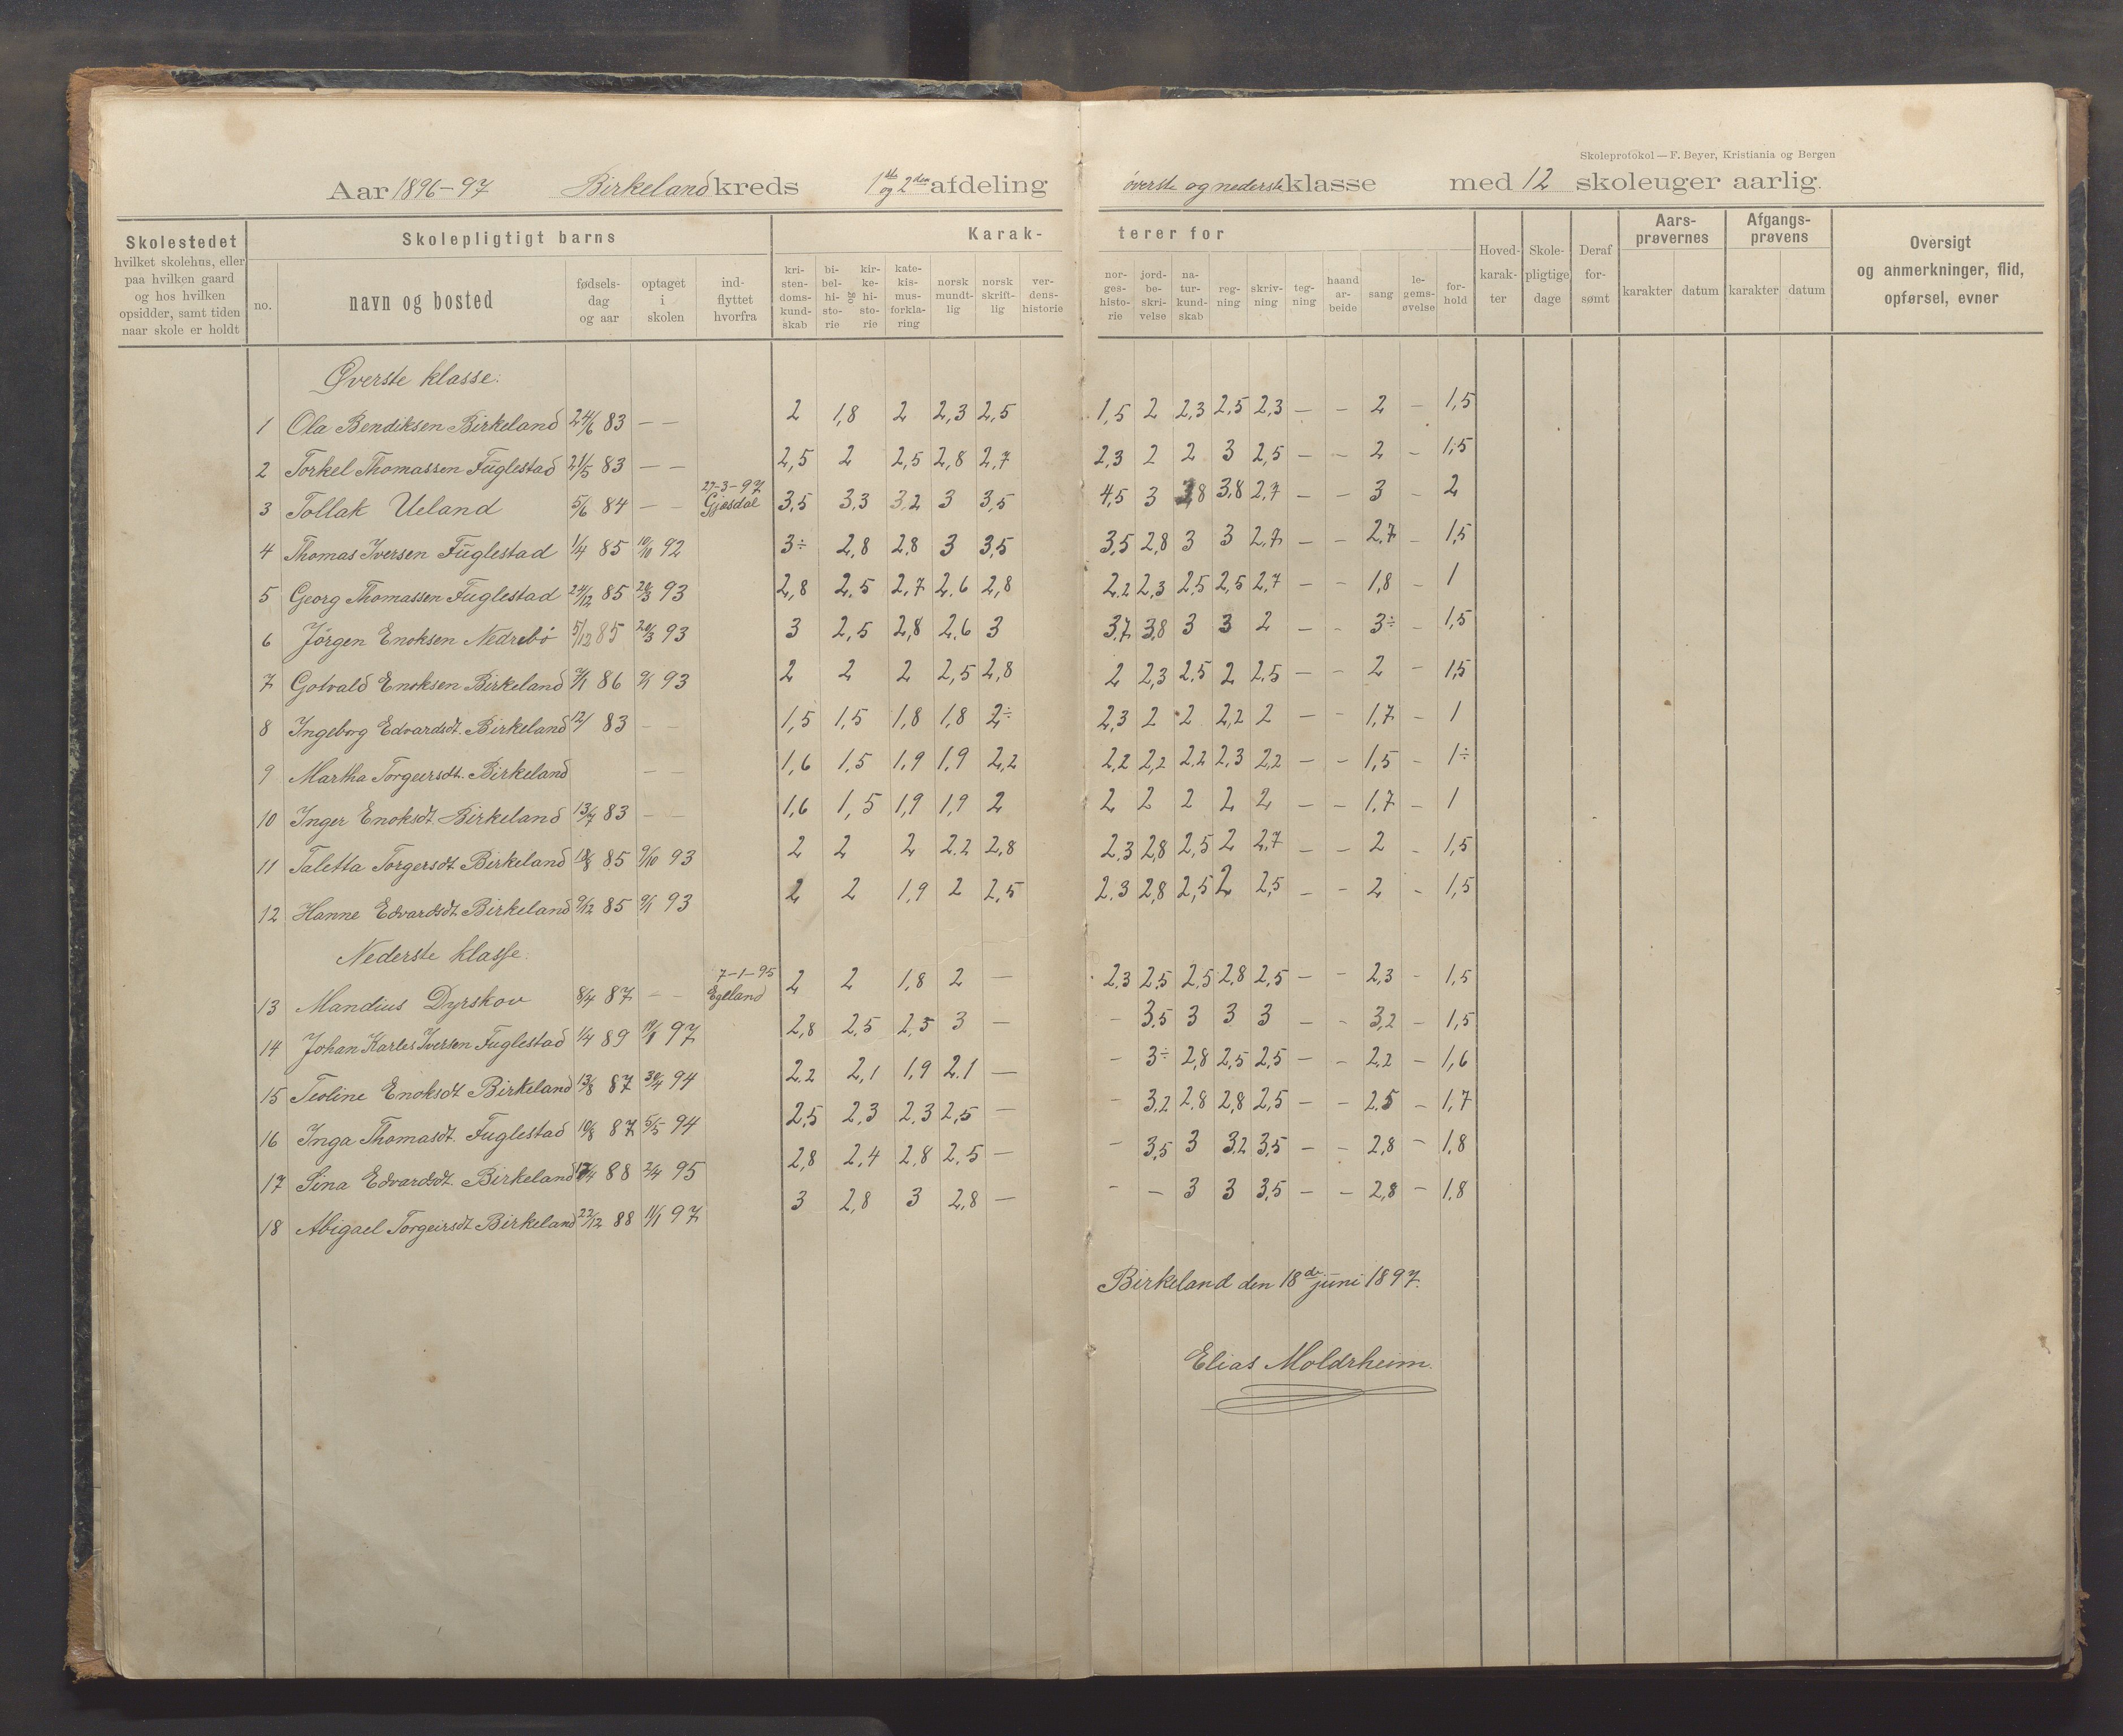 Skoleprotokol — F. Beyer, Kristiania og Bergen
Aar 1896-97 Birkeland kreds 1ste og 2den afdeling øverste og nederste klasse med 12 skoleuger aarlig.
Skolestedet hvilket skolehus, eller paa hvilken gaard og hos hvilken opsidder, samt tiden naar skole er holdt
Skolepligtigt barns
no. navn og bosted fødsels-dag og aar optaget i skolen ind-flyttet hvorfra
Karak-terer for
kri-sten-doms-kund-skab bi-bel-hi-sto-rie og kir-ke-hi-sto-rie kate-kis-mus-forkla-ring norsk mundt-lig norsk skrift-lig ver-dens-historie nor-ges-histo-rie jord-be-skri-velse na-tur-kund-skab reg-ning skriv-ning teg-ning haand ar-beide sang le-gems-øvelse for-hold
Hoved-karak-ter Skole-pligtige dage Deraf for-sømt
Aars-prøvernes karakter datum Afgangs-prøvens karakter datum
Oversigt og anmerkninger, flid, opførsel, evner
Øverste klasse:
1 Ola Bendiksen Birkeland 24/6 83 — — 2 1,8 2 2,3 2,5 1,5 2 2,3 2,5 2,3 — — 2 — 1,5
2 Torkel Thomassen Fuglestad 21/5 83 — — 2,5 2 2,5 2,8 2,7 2,3 2 2 3 2,5 — — 2 — 1,5
3 Tollak Ueland 5/6 84 — — 27-3-97 Gjesdal 3,5 3,3 3,2 3 3,5 4,5 3 3,8 3,8 2,7 — — 3 — 2
4 Thomas Iversen Fuglestad 1/4 85 10/10 92 3÷ 2,8 2,8 3 3,5 3,5 2,8 3 3 2,7 — — 2,7 — 1,5
5 Georg Thomassen Fuglestad 24/12 85 20/3 93 2,8 2,5 2,7 2,6 2,8 2,2 2,3 2,5 2,5 2,7 — — 1,8 — 1
6 Jörgen Enoksen Nedrebö 5/12 85 20/3 93 3 2,5 2,8 2,6 3 3,7 3,8 3 3 2 — — 3÷ — 1,5
7 Gotvald Enoksen Birkeland 7/1 86 9/1 93 2 2 2 2,5 2,8 2 2,3 2,5 2 2,5 — — 2 — 1,5
8 Ingeborg Edvardsdt. Birkeland 12/ 83 — — 1,5 1,5 1,8 1,8 2÷ 2,3 2 2 2,2 2 — — 1,7 — 1
9 Martha Torgeirsdt. Birkeland — — 1,6 1,5 1,9 1,9 2,2 2,2 2,2 2,2 2,3 2,2 — — 1,5 — 1÷
10 Inger Enoksdt. Birkeland 13/7 83 — — 1,6 1,5 1,9 1,9 2 2 2 2 2 2 — — 1,7 — 1
11 Taletta Torgersdt Birkeland 18/8 85 9/10 93 2 2 2 2,2 2,8 2,3 2,8 2,5 2 2,7 — — 2 — 1,5
12 Hanne Edvardsdt. Birkeland 9/12 85 9/1 93 2 2 1,9 2 2,5 2,3 2,8 2,5 2 2,5 — — 2 — 1,5
Nederste klasse.
13 Mandius Dyrskov 8/4 87 — — 7-1-95 Egeland 2 2 1,8 2 — 2,3 2,5 2,5 2,8 2,5 — — 2,3 — 1,5
14 Johan Karles Iversen Fuglestad 1/4 89 97 2,8 2,5 2,5 3 — — 3,5 3 3 3 — — 3,2 — 1,5
15 Teoline Enoksdt Birkeland 13/8 87 30/4 94 2,2 2,1 1,9 2,1 — — 3÷ 2,8 2,5 2,5 — — 2,2 — 1,6
16 Inga Thomasdt. Fuglestad 10/8 87 5/5 94 2,5 2,3 2,3 2,5 — — 3,2 2,8 2,8 2,5 — — 2,5 — 1,7
17 Sina Edvardsdt. Birkeland 17/4 88 2/4 95 2,8 2,4 2,8 2,5 — — 3,5 3 3,2 3,5 — — 2,8 — 1,8
18 Abigael Torgeirsdt Birkeland 22/12 88 11/1 97 3 2,8 3 2,8 — — — 3 3 3,5 — — 2,8 — 1,8
Birkeland den 18de juni 1897.
Elias Moldrheim.